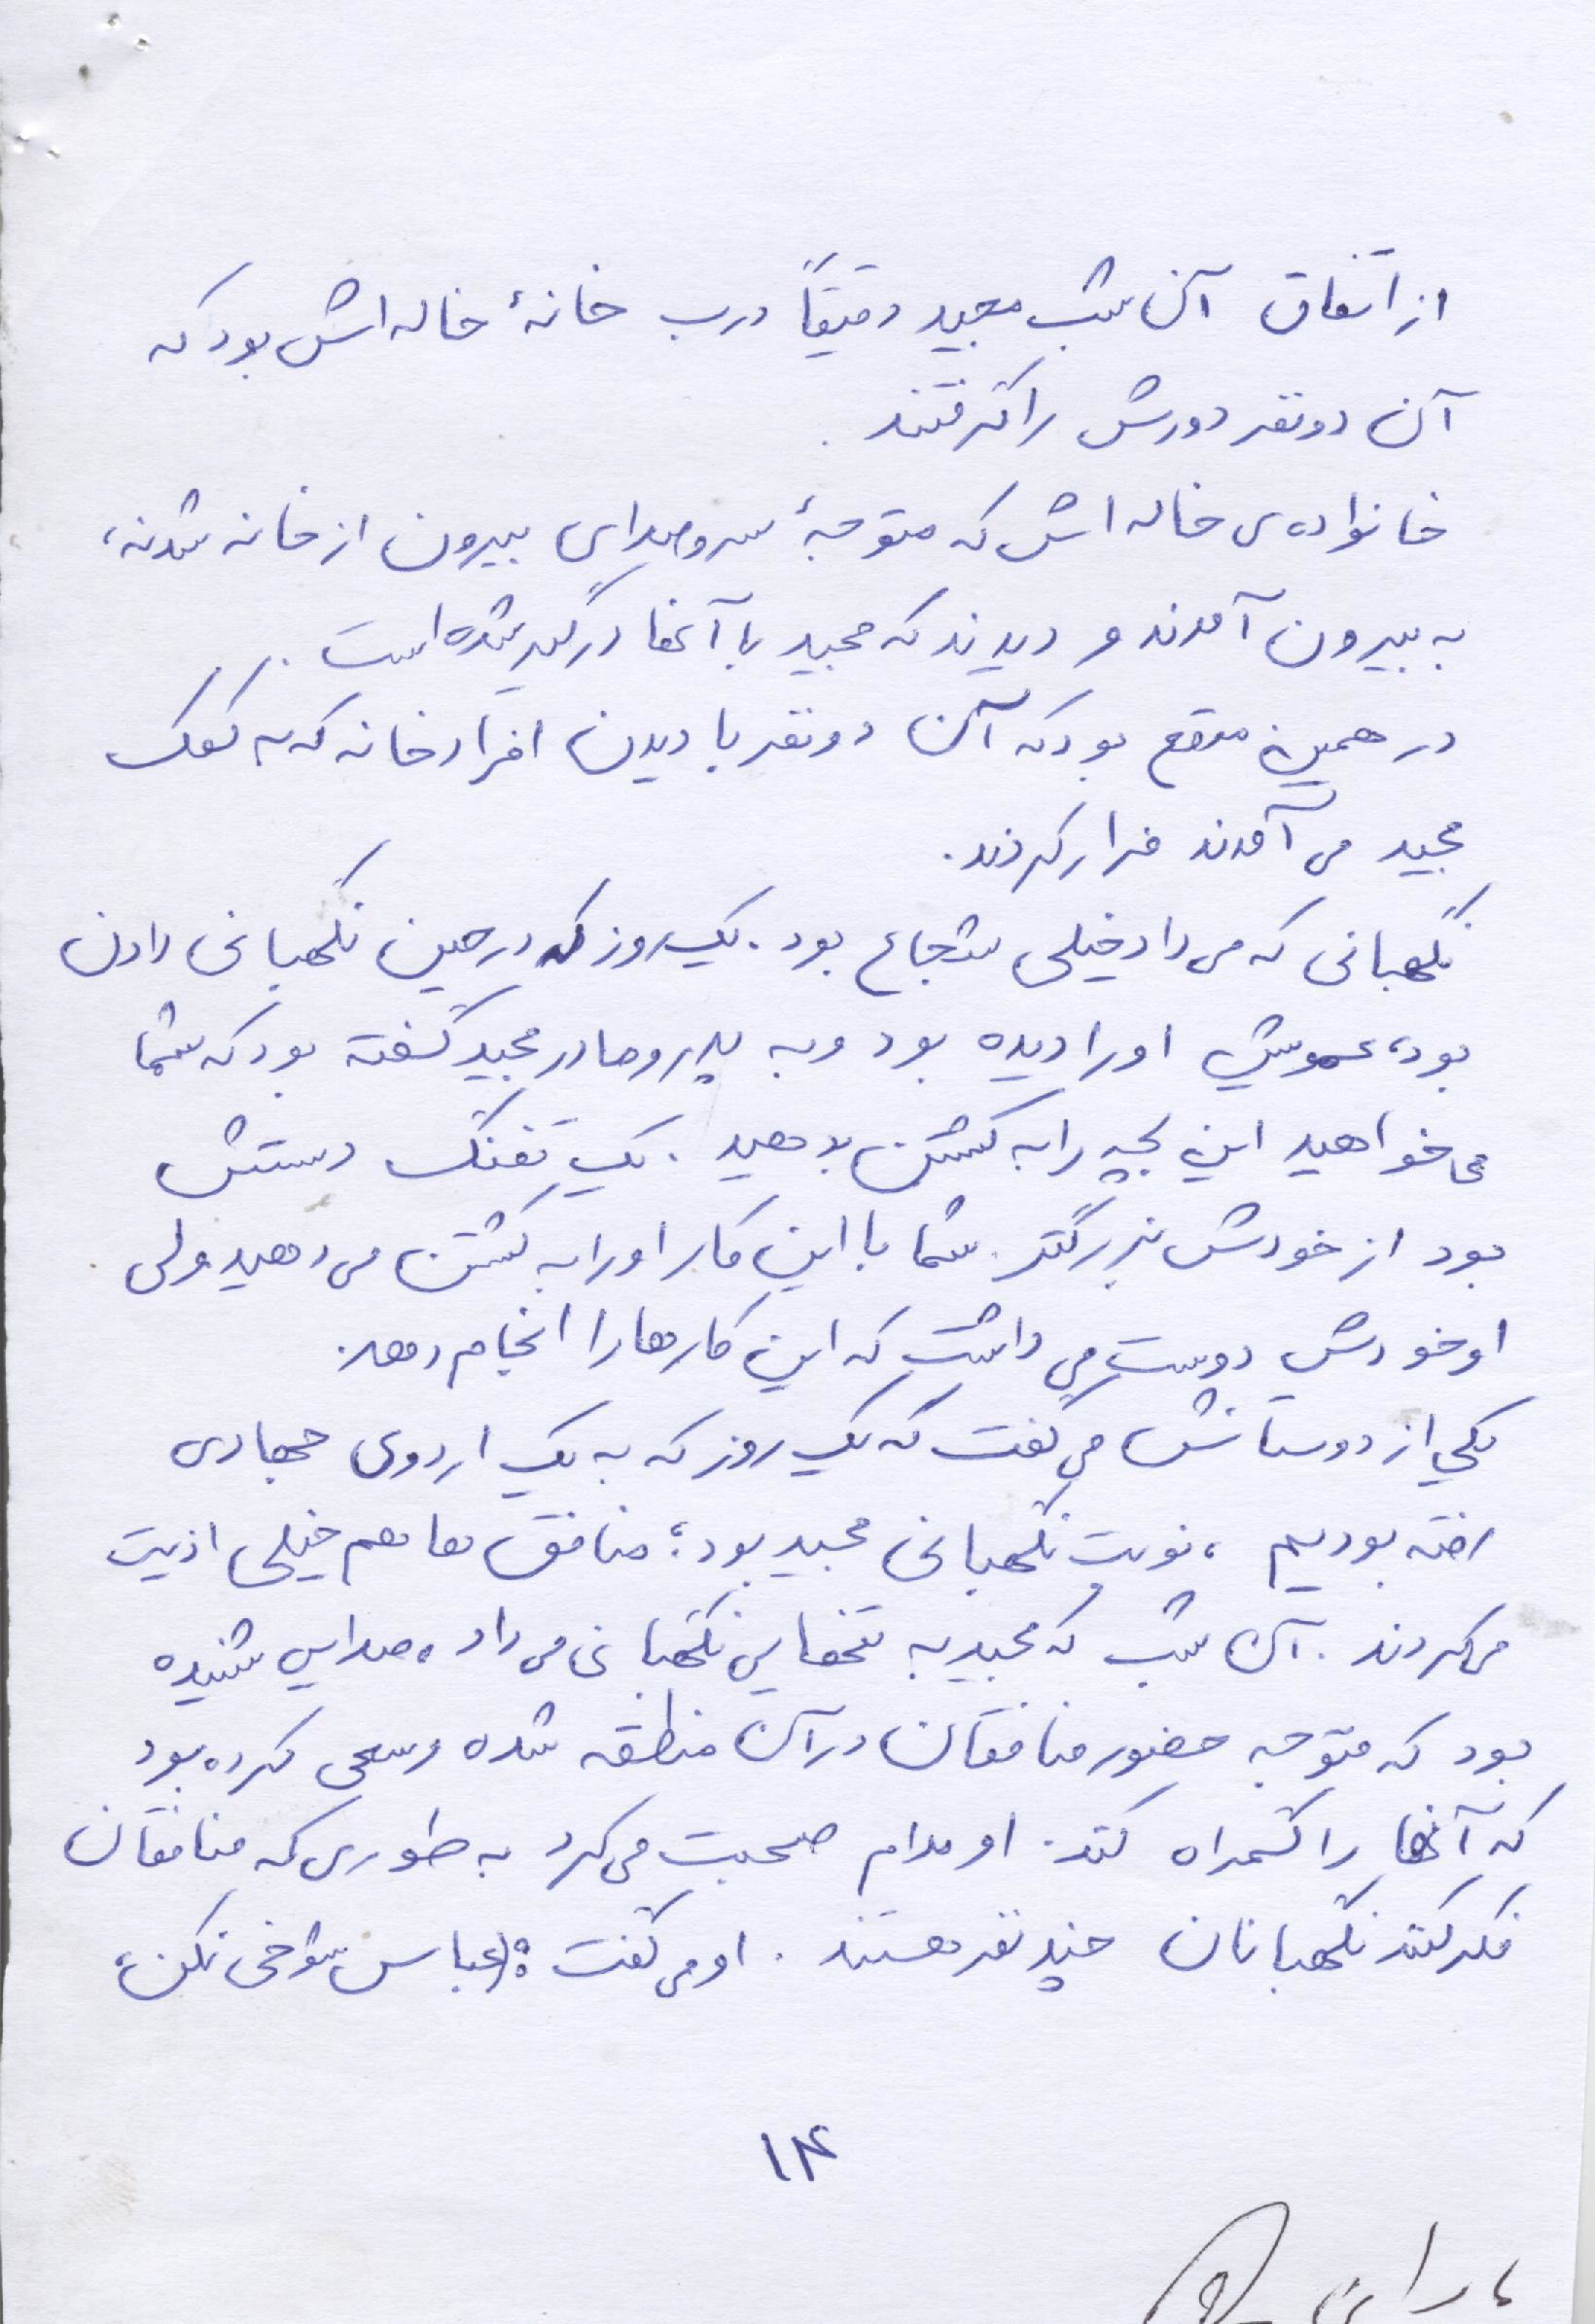 از اتفاق آن شب مجید دقیقاً درب خانهٔ خاله اش بود که
آن دو نفر دورش را گرفتند.
خانواده‌ی خاله اش که متوجهٔ سر و صدای بیرون از خانه شدند،
به بیرون آمدند و دیدند که مجید با آنها درگیر شده است.
در همین موقع بود که آن دو نفر با دیدن افراد خانه که به کمک
مجید می آمدند فرار کردند.
نگهبانی که می داد خیلی شجاع بود. یک روز که در حین نگهبانی دادن
بود، عمویش او را دیده بود و به پدر و مادر مجید گفته بود که شما
می خواهید این بچه را به کشتن بدهید. یک تفنگ دستش
بود از خودش بزرگتر. شما با این کار او را به کشتن می دهید ولی
او خودش دوست می داشت که این کارها را انجام دهد.
یکی از دوستانش می گفت که یک روز که به یک اردوی جهادی
رفته بودیم، نوبت نگهبانی مجید بود؛ منافق ها هم خیلی اذیت
می کردند. آن شب که مجید به تنهایی نگهبانی می داد، صدایی شنیده
بود که متوجه حضور منافقان در آن منطقه شده و سعی کرده بود
که آنها را گمراه کند. او مدام صحبت می کرد به طوری که منافقان
فکر کنند نگهبانان چند نفر هستند. او می گفت: ((عباس شوخی نکن،
۱۴